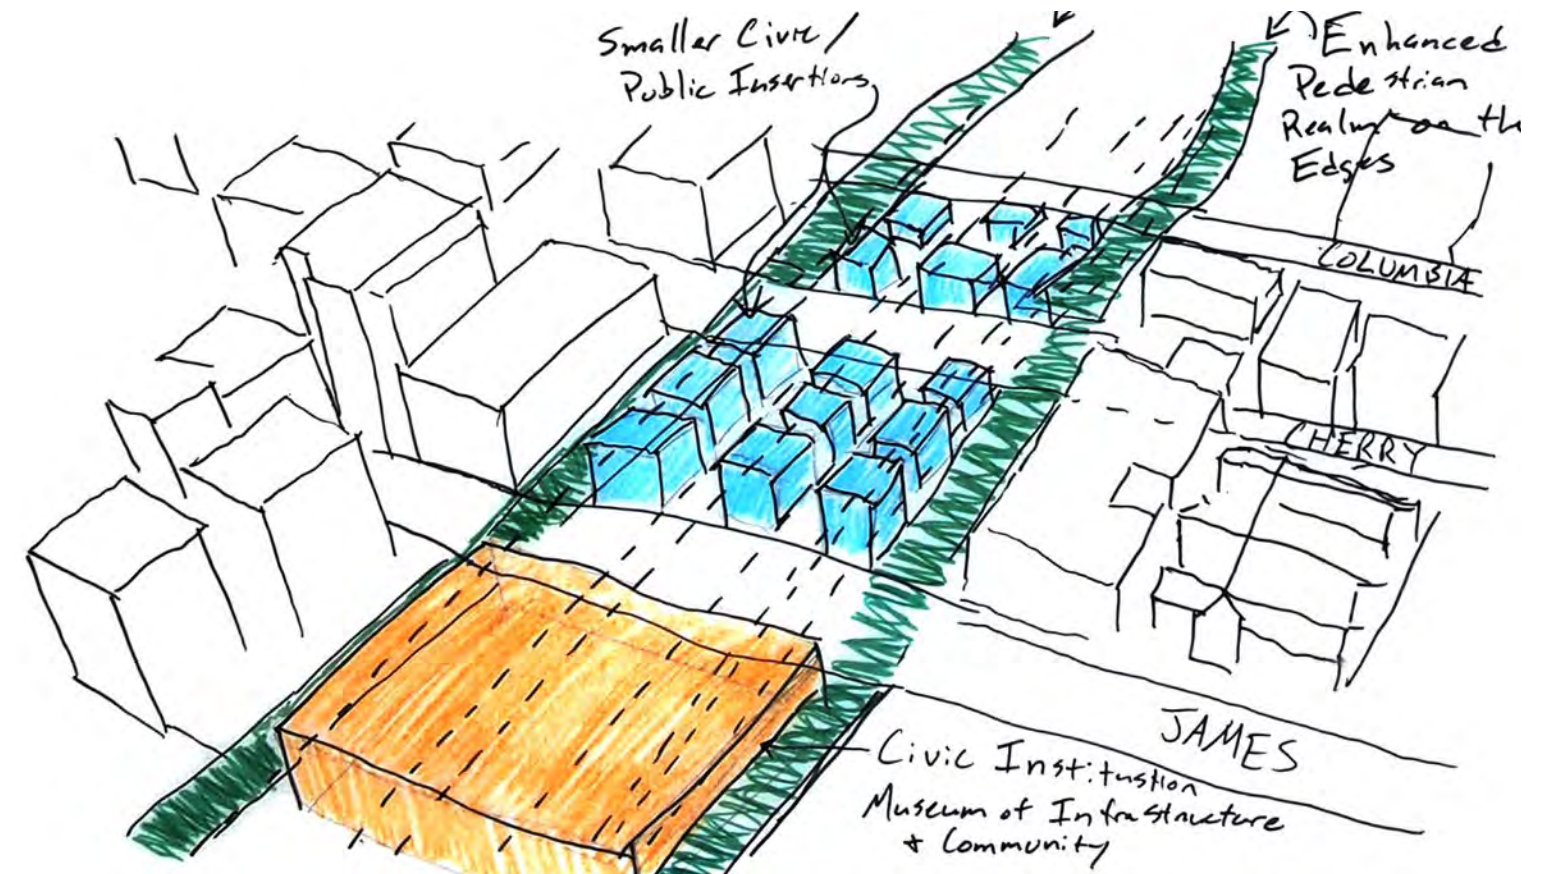 Smaller Civic /
Public Insertions
Enhanced
Pedestrian
Realm on the
Edges
COLUMBIA
CHERRY
JAMES
Civic Institustion
Museum of Infrastructure
& Community